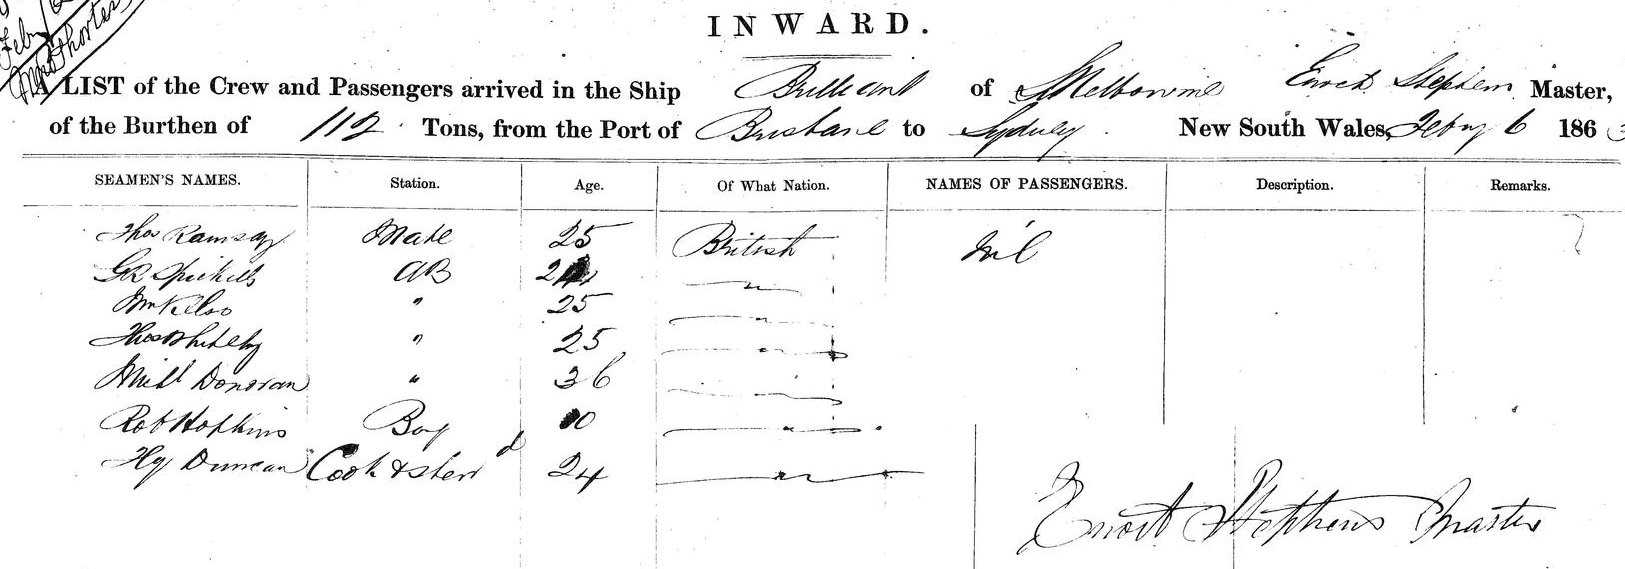 Feby
INWARD.
A LIST of the Crew and Passengers arrived in the Ship Brilliant of Melbourne Enoch Stephens Master,
of the Burthen of 112 Tons, from the Port of Brisbane to Sydney. New South Wales, Feby 6 1863
SEAMEN'S NAMES. Station. Age. Of What Nation. NAMES OF PASSENGERS. Description. Remarks.
Thos Ramsay Mate 25 British Nil
GR AB 24 "
Wm Kelso " 25 "
Thos " 25 "
Donovan " 36 "
Rob Hopkins Boy "
Hy Duncan Cook & Stewd 24 "
Enoch Stephens Master